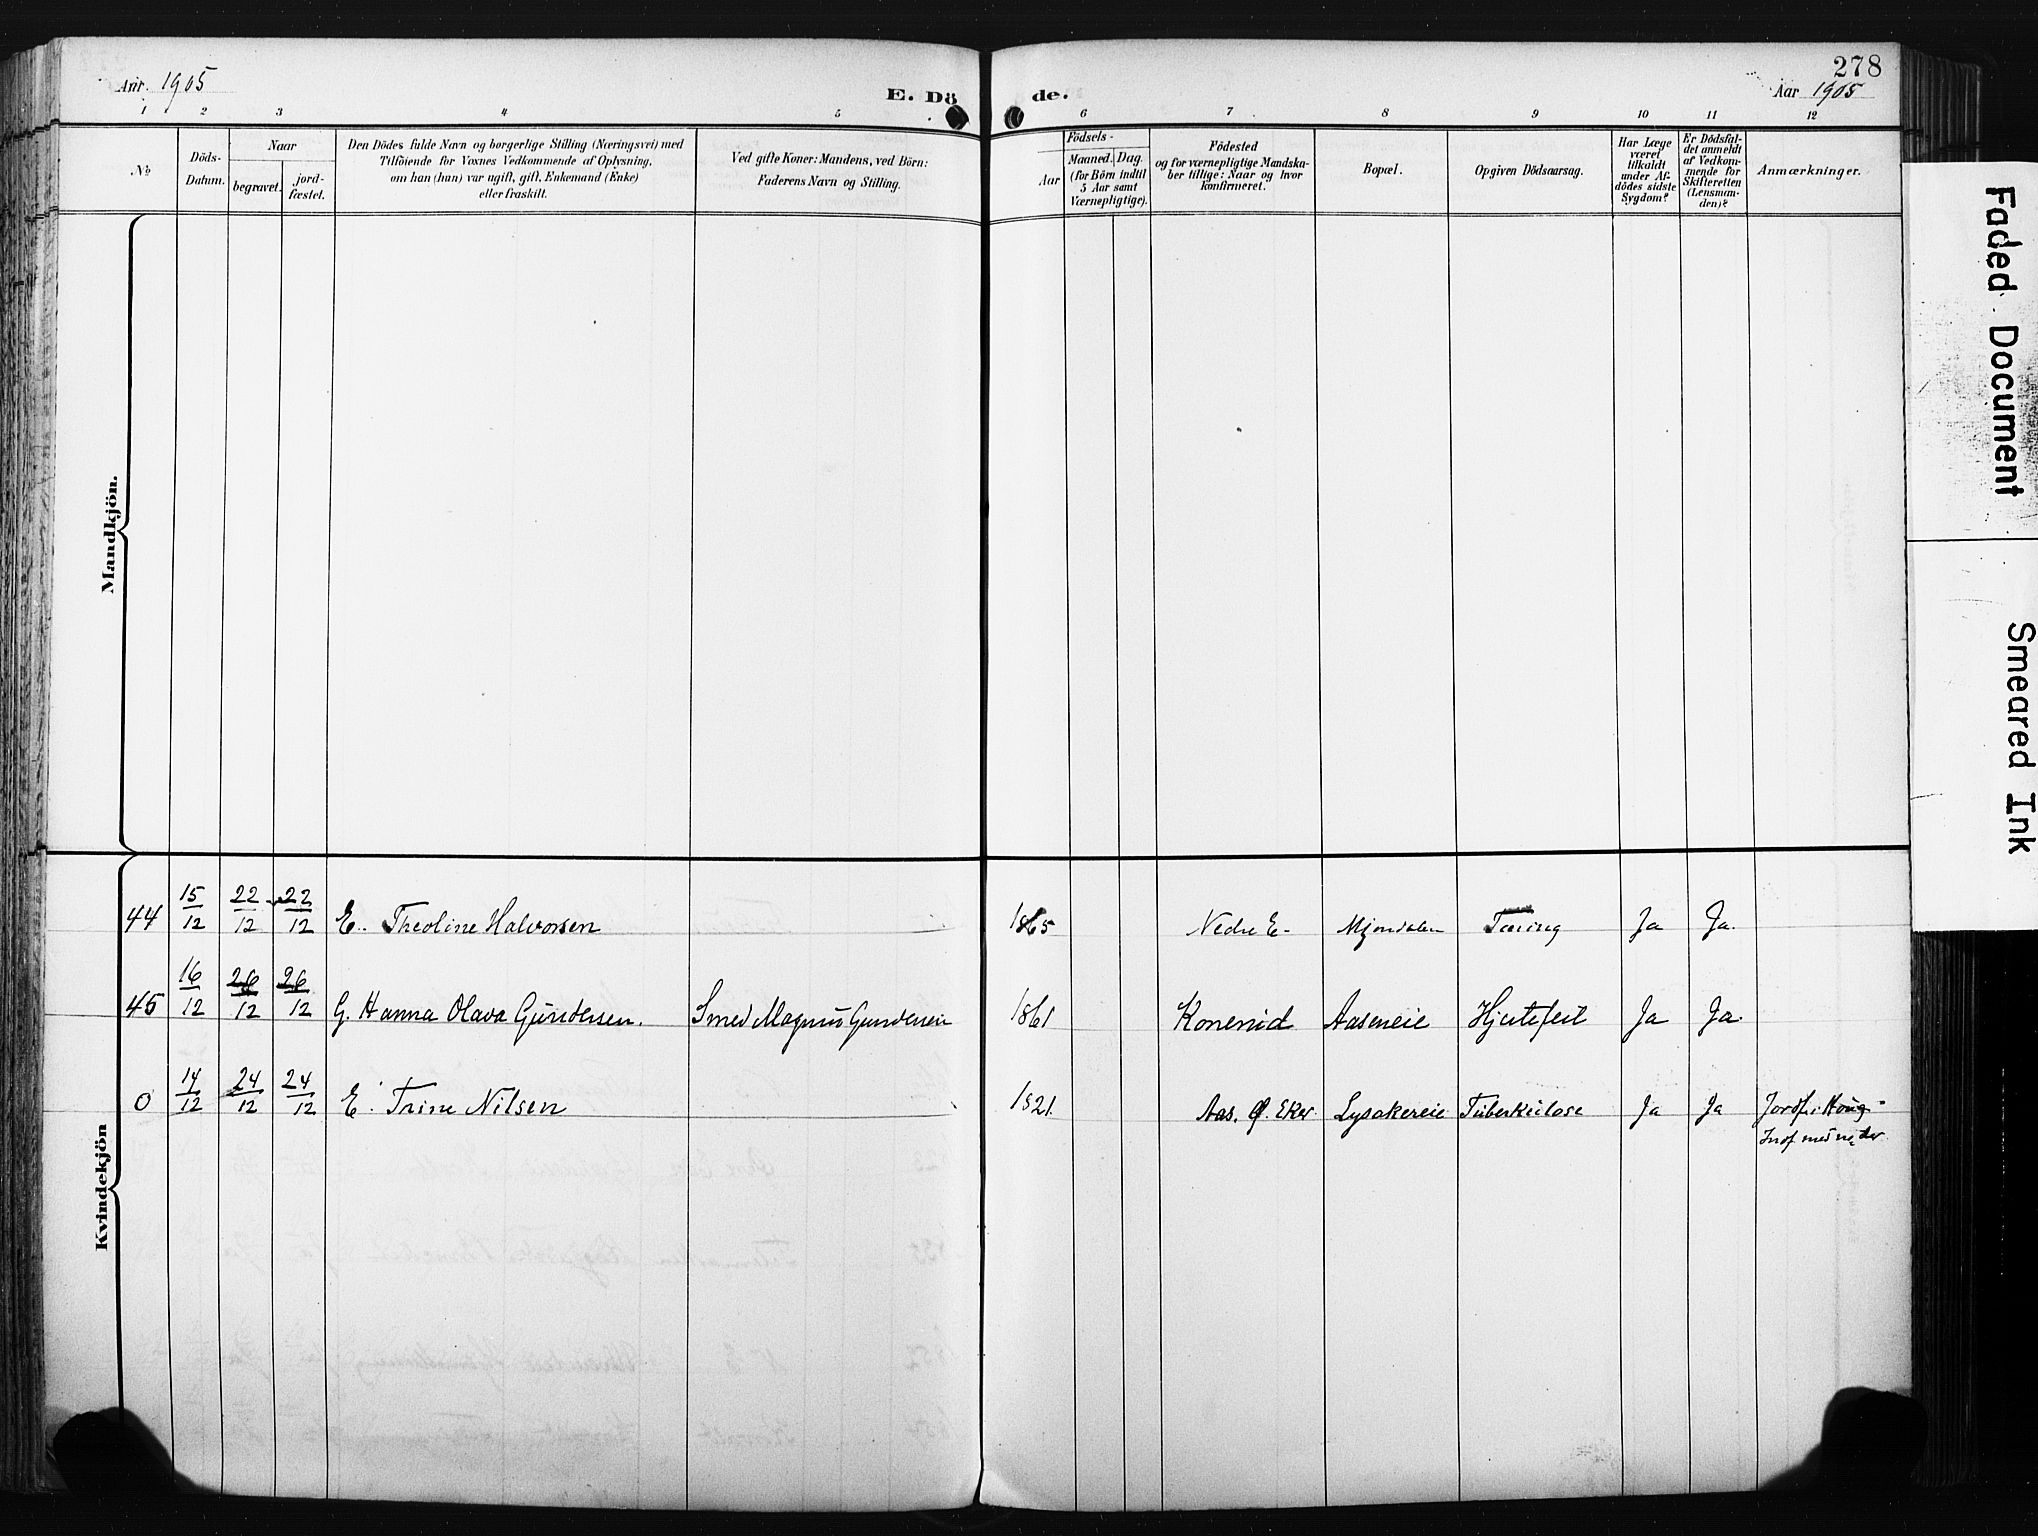 278
Aar 1905
E. Dö de.
Aar 1905
1 2 3 4 5 6 7 8 9 10 11 12
№
Döds-
Datum.
Naar
begravet.
jord-
fæstet.
Den Dödes fulde Navn og borgerlige Stilling (Næringsvei) med
Tilföiende for Voxnes Vedkommende af Oplysning,
om han (hun) var ugift, gift, Enkemand (Enke)
eller fraskilt.
Ved gifte Koner: Mandens, ved Börn:
Faderens Navn og Stilling.
Födsels-
Aar
Maaned. Dag.
(for Börn indtil
5 Aar samt
Værnepligtige).
Födested
og for værnepligtige Mandska-
ber tillige: Naar og hvor
konfirmeret.
Bopæl.
Opgiven Dödsaarsag.
Har Læge
været
tilkaldt
under Af-
dödes sidste
Sygdom?
Er Dödsfal-
det anmeldt
af Vedkom-
mende for
Skifteretten
(Lensman-
den)?
Anmærkninger.
Mandkjön.
Kvindekjön
44 15/12 22/12 22/12 E. Theoline Halvorsen 1865 Nedre E- Mjøndalen Tæring Ja Ja.
45 16/12 26/12 26/12 G. Hanna Olava Gundersen. Smed Magnus Gundersen 1861 Konerud Aaseneie Hjertefeil Ja Ja.
0 14/12 24/12 24/12 E. Trine Nilsen 1821 Aas. Ø. Eker Lysakereie Tuberkulose Ja Ja Jordf. i
Faded Document
Smeared Ink